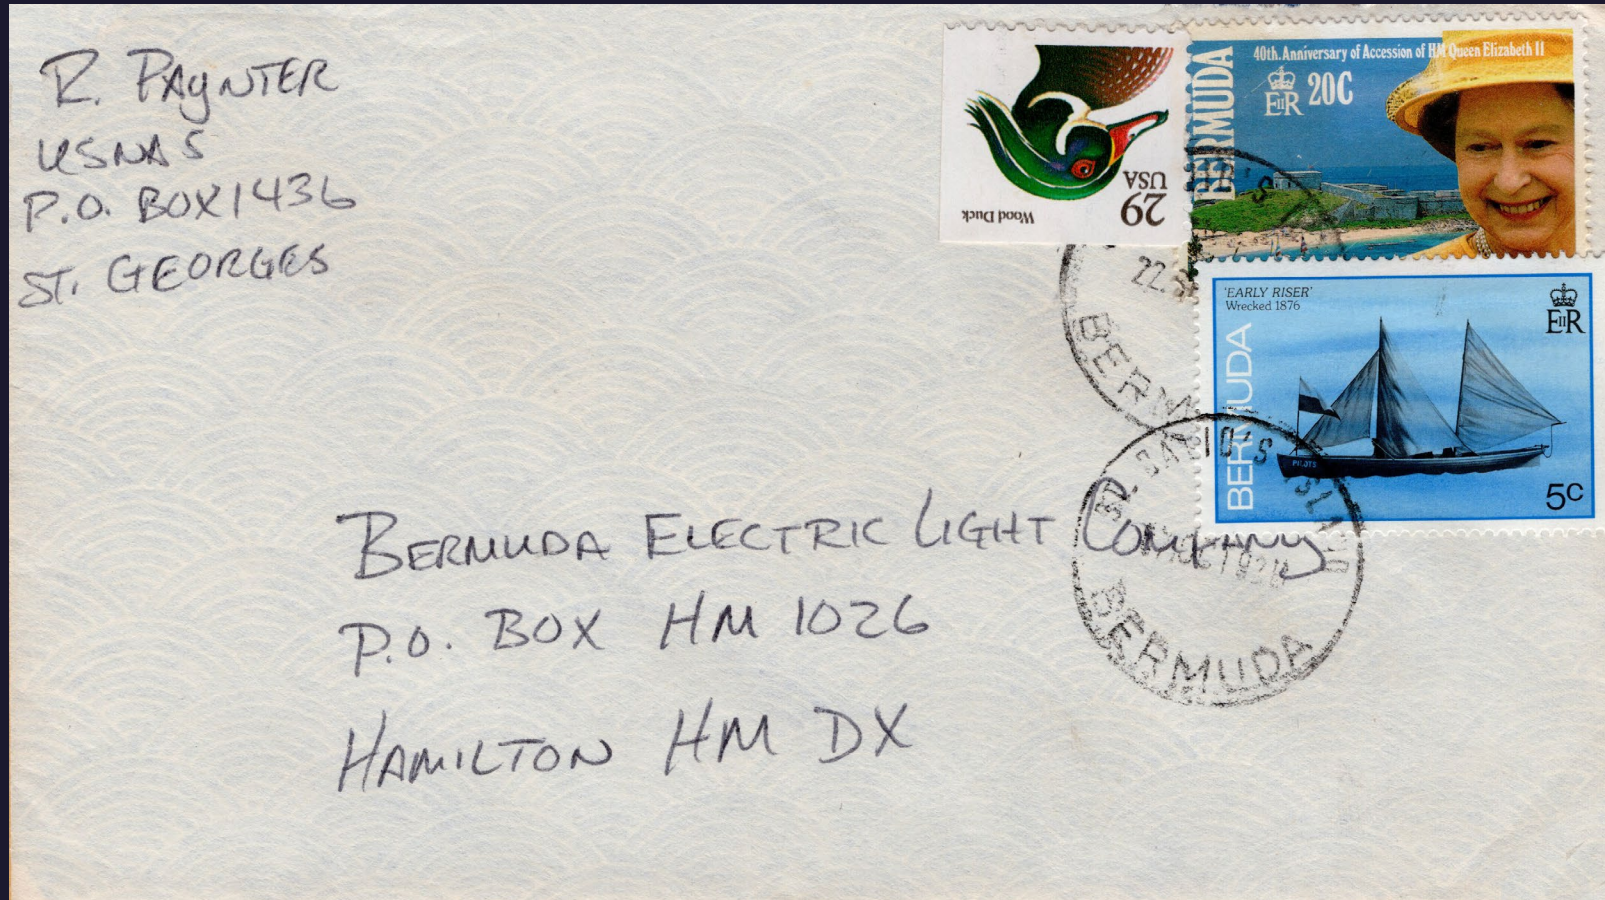 R. PAYNTER
USNAS
P.O. BOX 1436
ST. GEORGES
Wood Duck
29
USA
40th. Anniversary of Accession of HM Queen Elizabeth II
EIIR
20C
BERMUDA
'EARLY RISER'
Wrecked 1876
EIIR
BERMUDA
PILOTS
5c
22.
BERMU
ST. DAVID'S ISLAND
BERMUDA
BERMUDA ELECTRIC LIGHT COMPANY
P.O. BOX HM 1026
HAMILTON HM DX